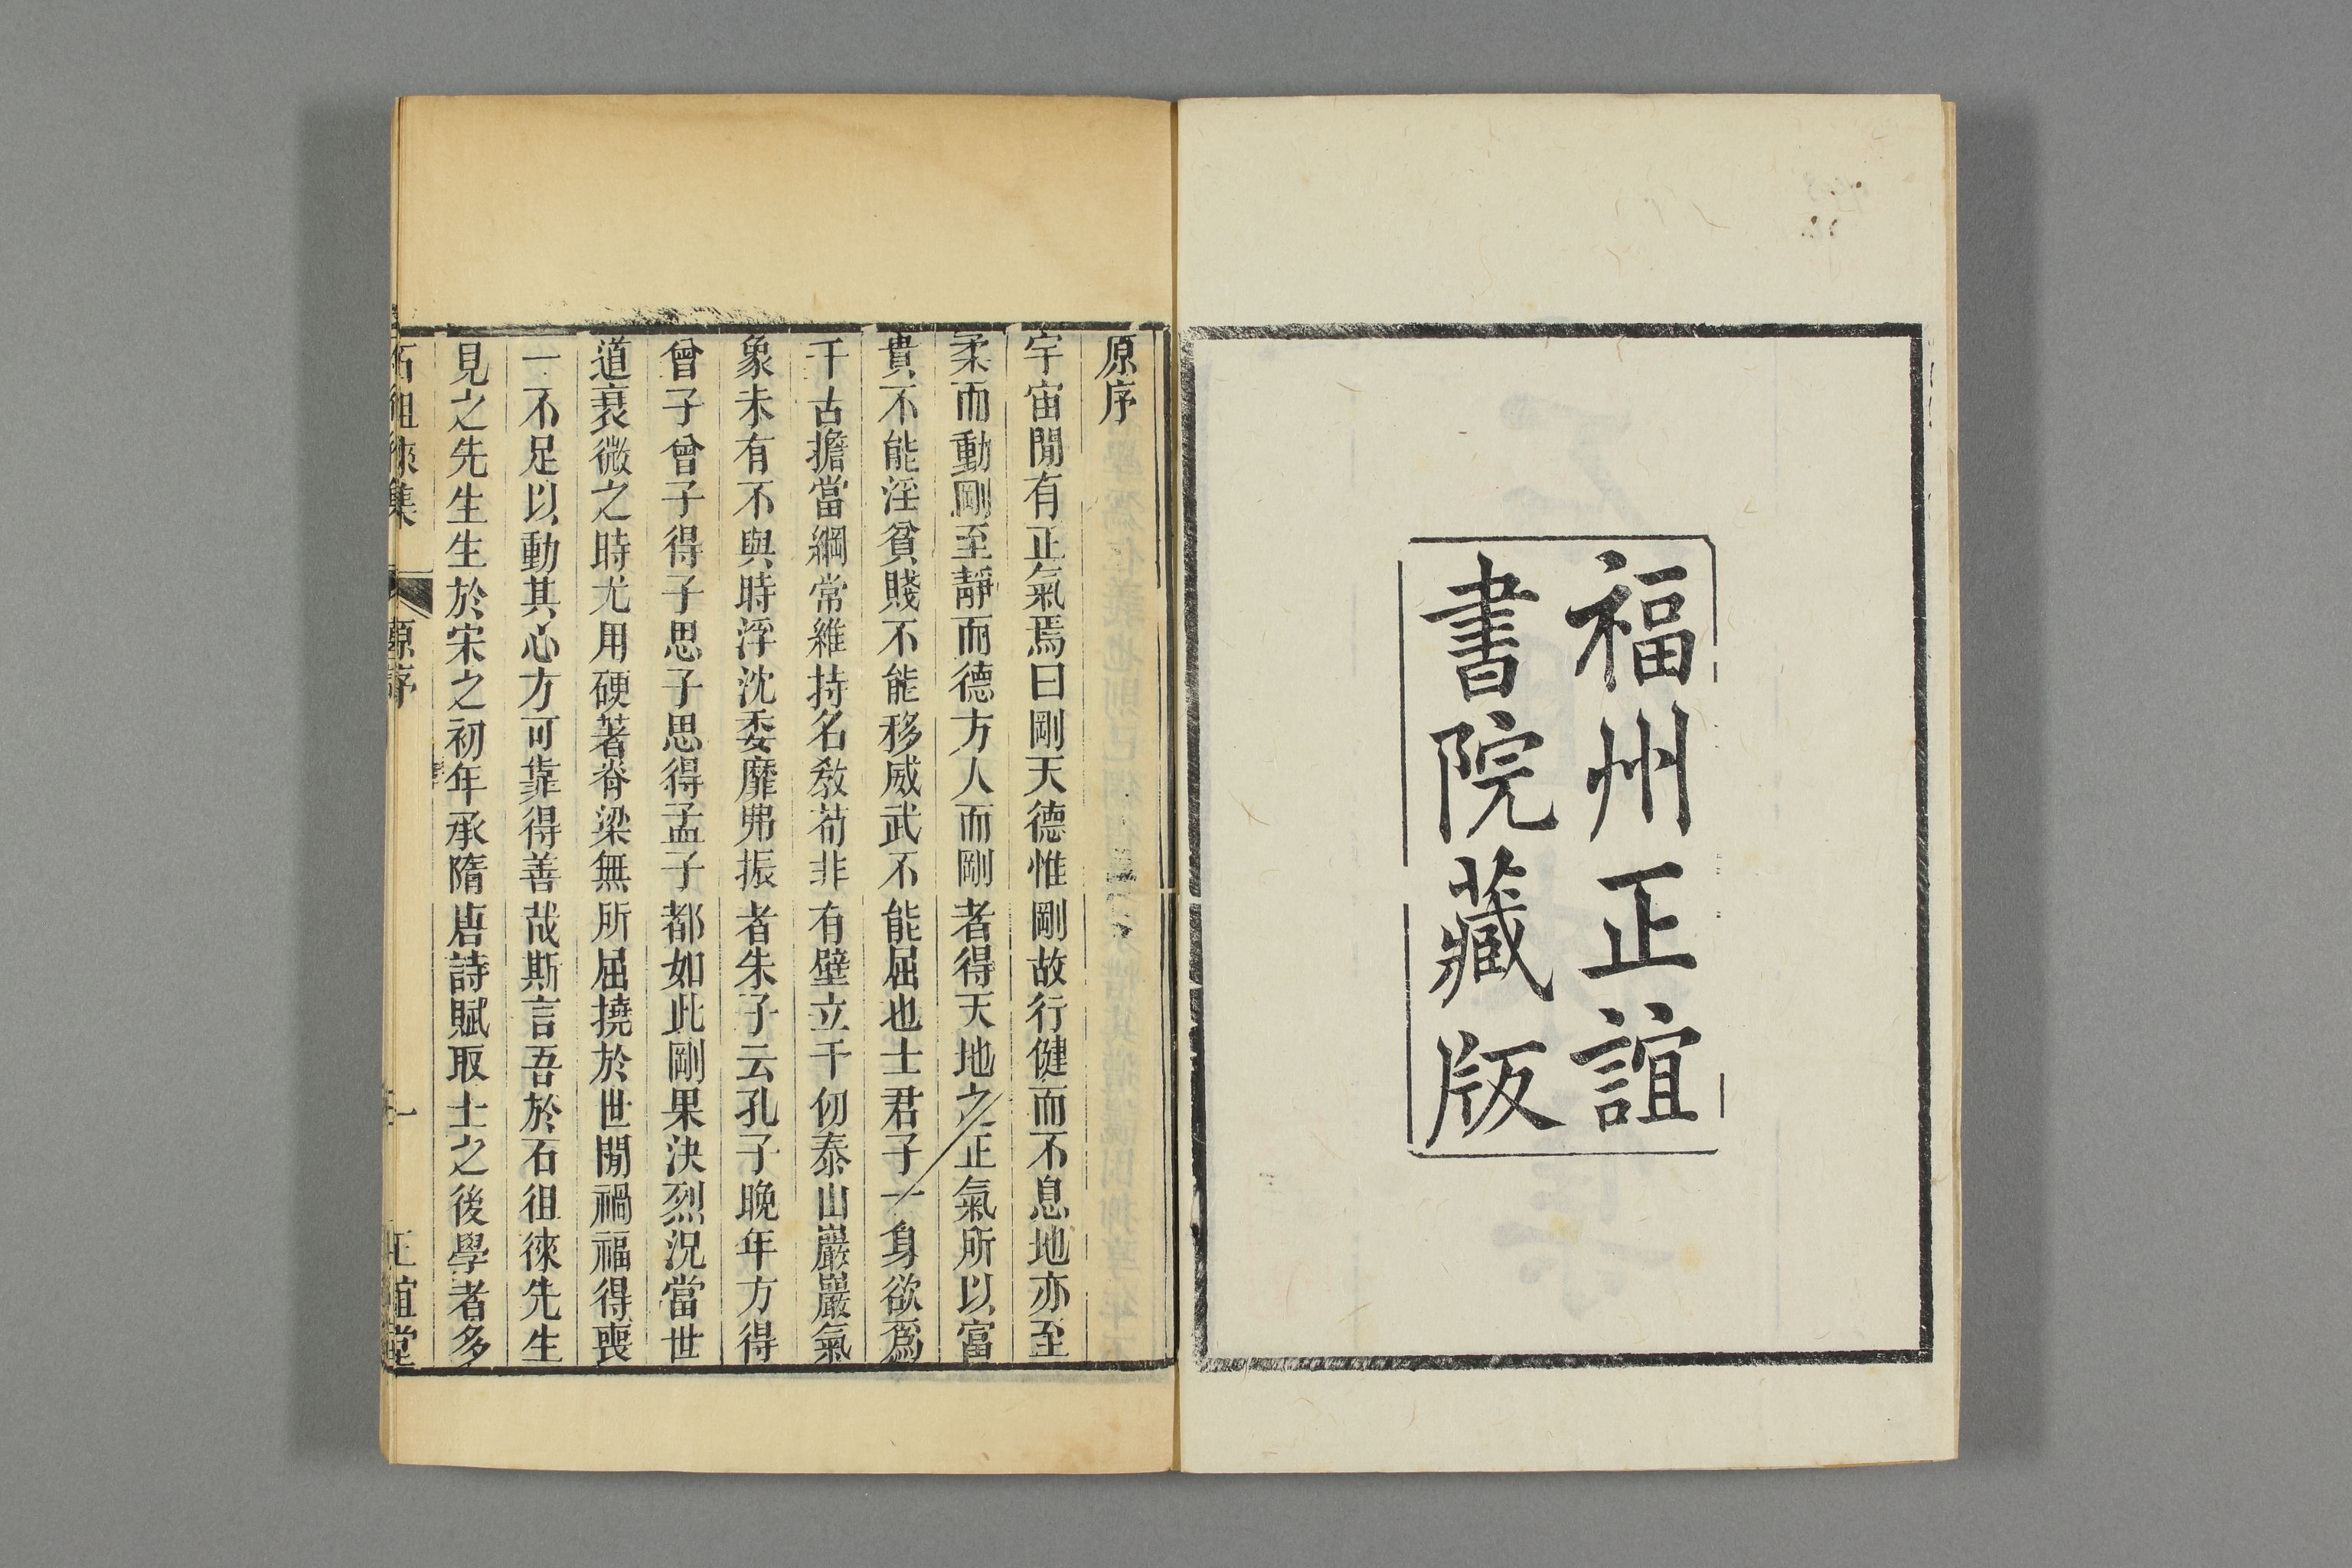 福州正誼
書院藏版
原序
宇宙閒有正氣焉曰剛天德惟剛故行健而不息地亦至
柔而動剛至靜而德方人而剛者得天地之正氣所以富
貴不能淫貧賤不能移威武不能屈也士君子一身欲爲
千古擔當綱常維持名敎苟非有壁立千仞泰山巖巖氣
象未有不與時浮沈委靡弗振者朱子云孔子晚年方得
曾子曾子得子思子思得孟子都如此剛果決烈況當世
道衰微之時尤用硬著脊梁無所屈撓於世閒禍福得喪
一不足以動其心方可靠得善哉斯言吾於石徂徠先生
見之先生生於宋之初年承隋唐詩賦取士之後學者多
石徂徠集 原序 一 正誼堂